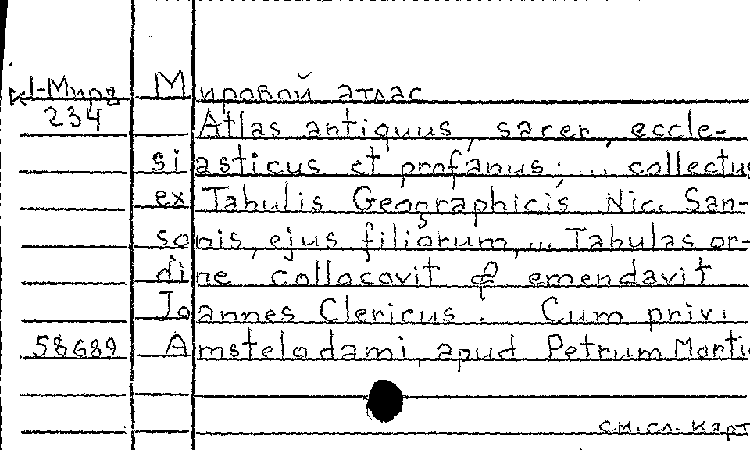 К1-Мира Мировой атлас
234 Atlas antiquus, sacer, eccle-
siasticus et profanus; ... collectus
ex Tabulis Geographicis Nic. San-
sonis, ejus filiorum, ... Tabulas or-
dine collocavit & emendavit
Joannes Clericus. Cum privi
58689 Amstelodami, apud Petrum Morti
см. сл. карт